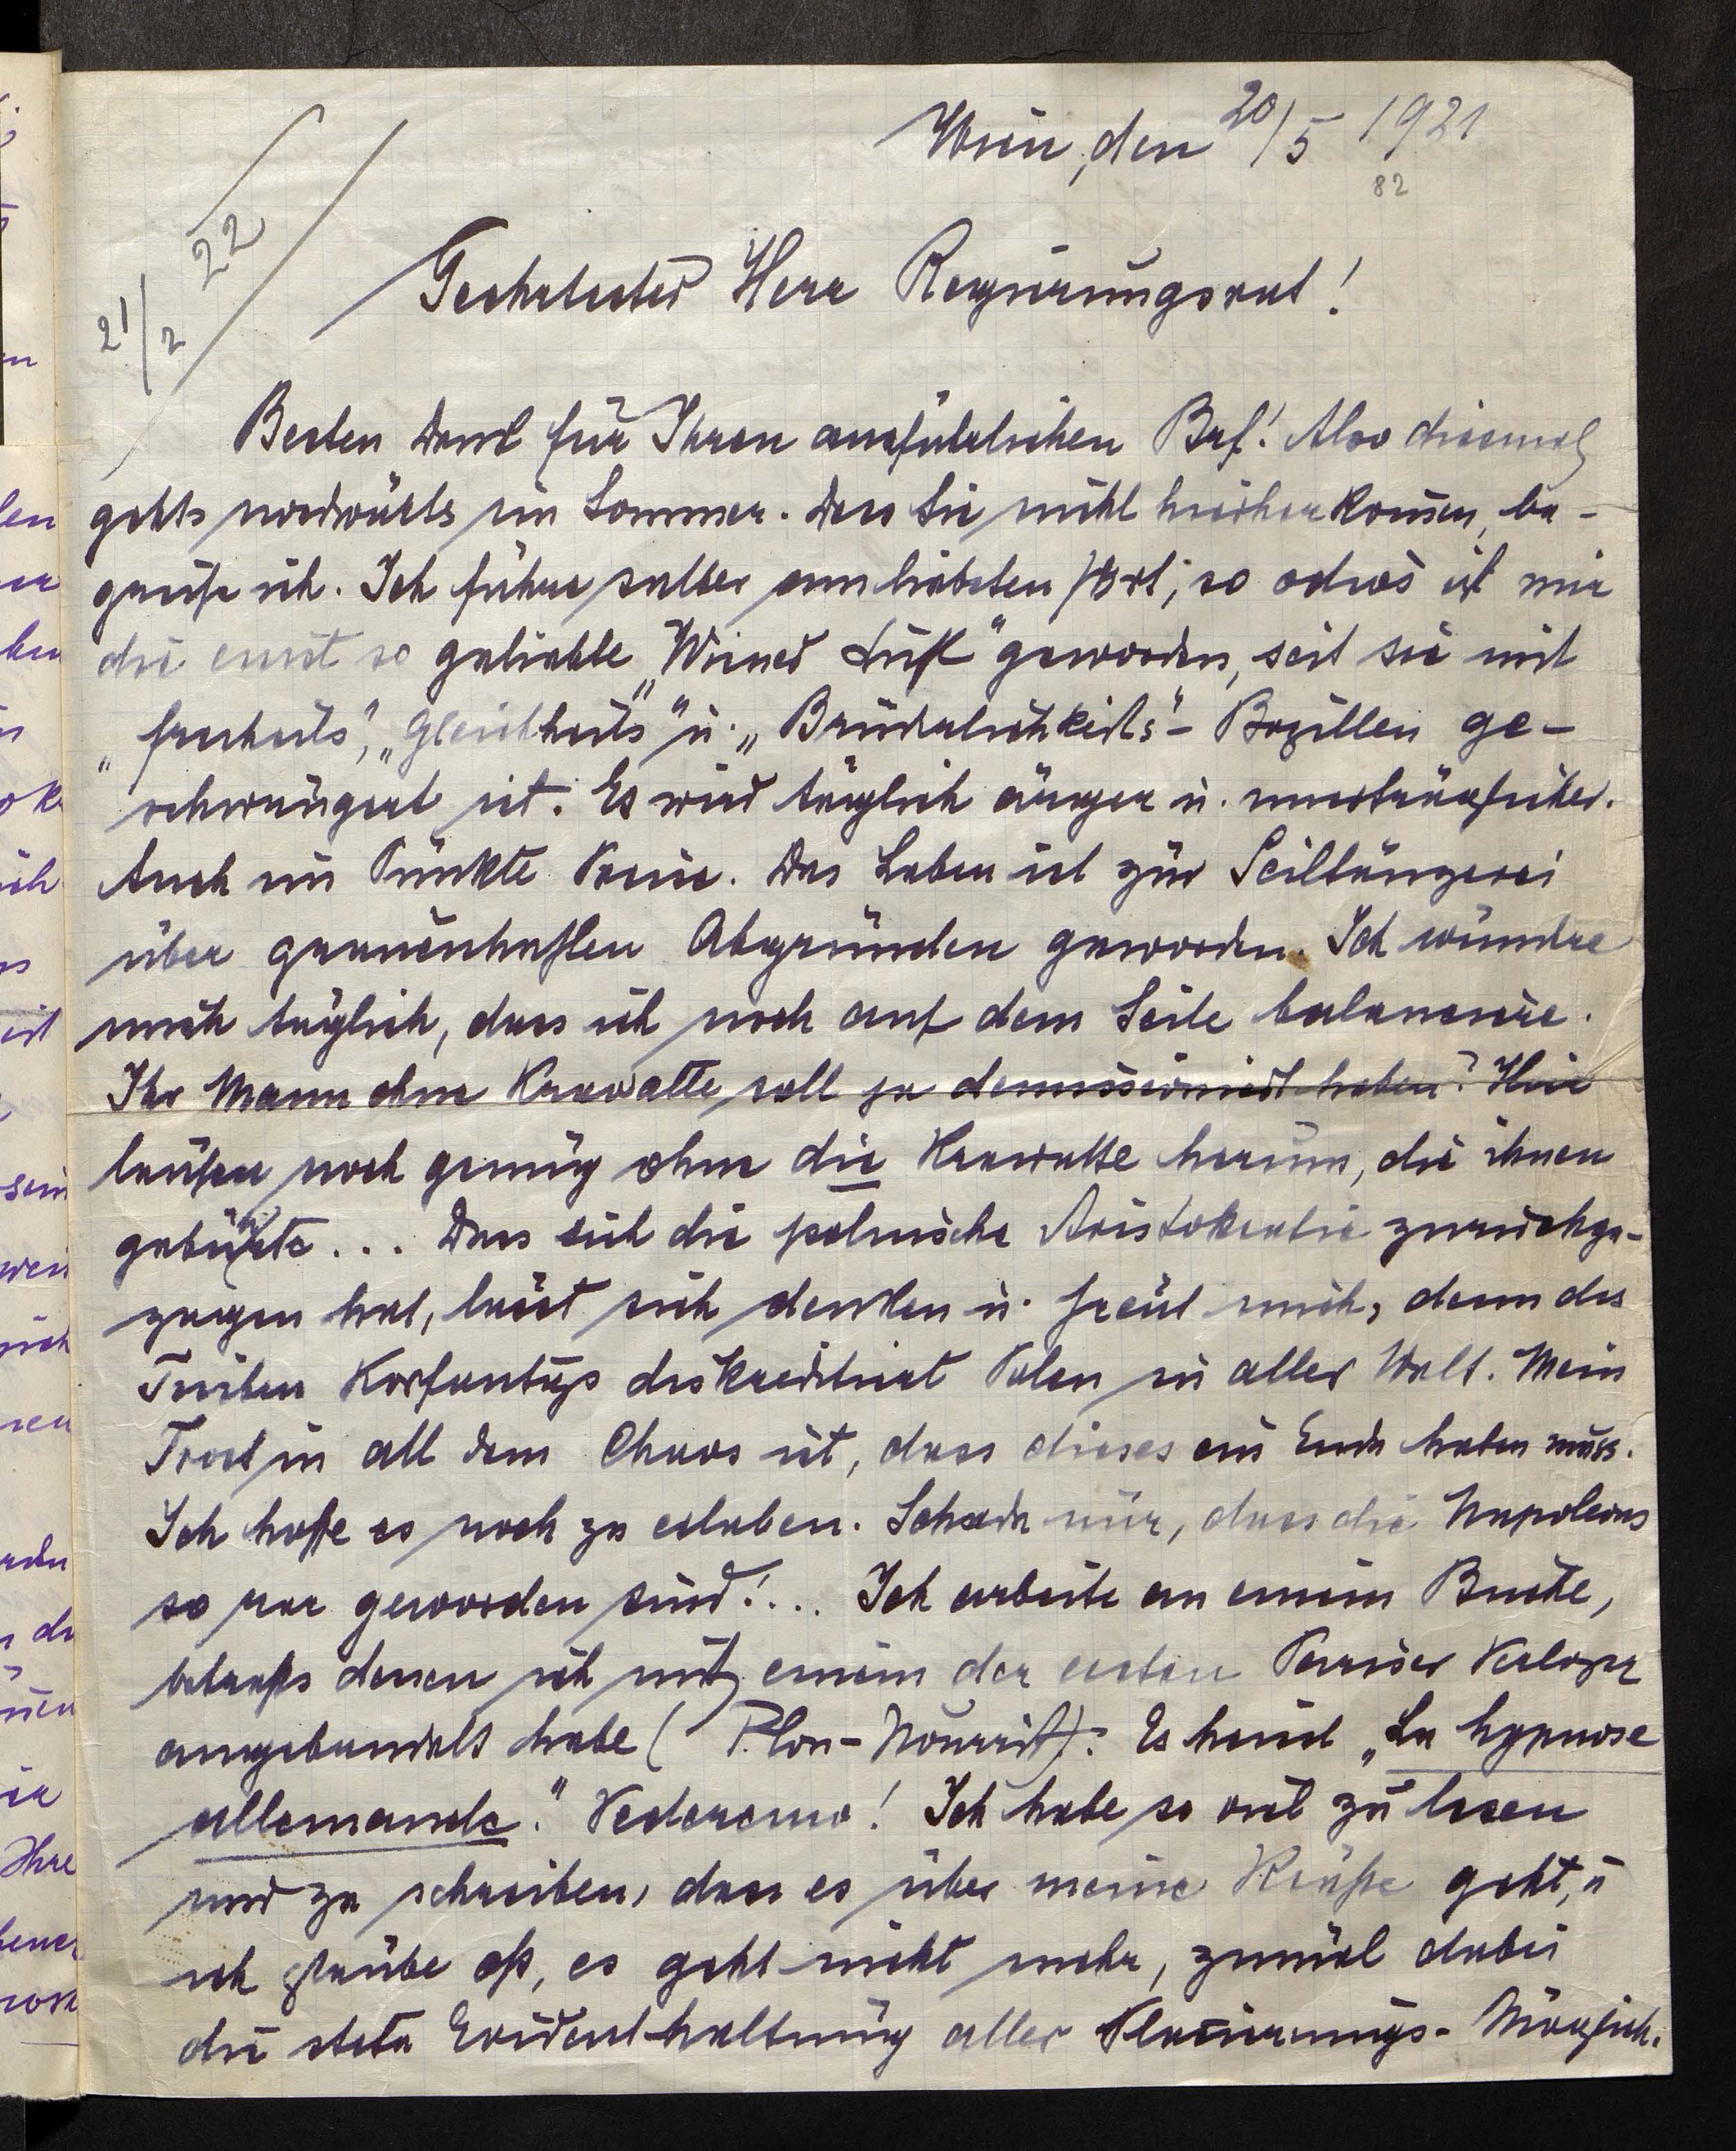 Wien, den 20/5 1921
82
21/2 22
Geehrtester Herr Regierungsrat!
Besten Dank für Ihren ausführlichen Brf! Also diesmal
gehts nordwärts im Sommer. Dass Sie nicht hieherkomen, be-
greife ich. Ich führe selber am liebsten fort; so odios ist mir
die einst so geliebte „Wiener Luft" geworden, seit sie mit
„freiheits", „Gleichheits" u. „Brüderlichkeits"- Bazillen ge-
schwängert ist. Es wird täglich ärger u. unerträglicher.
Auch im Punkte Preise. Das Leben ist zur Seiltänzerei
über grauenhaften Abgründen geworden. Ich wundre
mich täglich, dass ich noch auf dem Seile balanciere.
Ihr Mann ohne Krawatte soll ja demissioniert haben? Hier
laufen noch genug ohne die Krawatte herum, die ihnen
gebührte... Dass sich die polnische Aristokratie zurückge-
zogen hat, lässt sich denken u. freut mich, denn das
Treiben Korfantys diskreditiert Polen in aller Welt. Mein
Trost in all dem Chaos ist, dass dieses ein Ende haben muss.
Ich hoffe es noch zu erleben. Schade nur, dass die Napoleons
so rar geworden sind!... Ich arbeite an einem Buche,
betreffs dessen ich mit einem der ersten Pariser Verleger
angebandelt habe (Plon-Nourrit). Es heisst „La hypnose
allemande." Vederemo! Ich habe so viel zu lesen
und zu schreiben, dass es über meine Kräfte geht, u
ich glaube oft, es geht nicht mehr, zumal dabei
die stete Evidenthaltung aller Placierungs- Möglich-